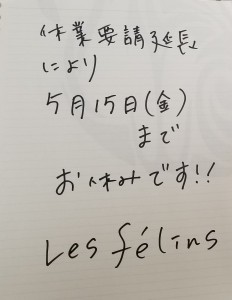 休業要請延長
により
5月15日(金)
まで
お休みです!!
Les félins